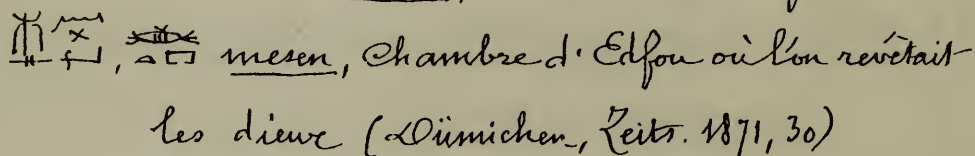 mesen, Chambre d'Edfou où l'on revêtait
les dieux (Dümichen, Zeits. 1871, 30)